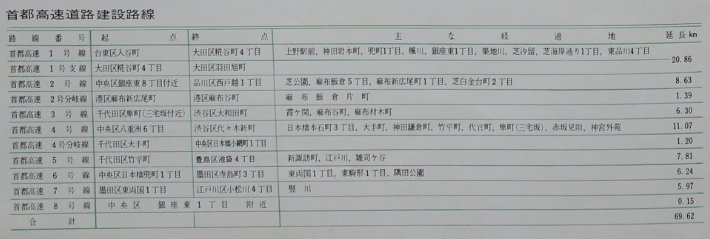 首都高速道路建設路線
路線番号 起点 終点 主な経過地 延長km
首都高速 1号線 台東区入谷町 大田区糀谷町4丁目 上野駅前，神田岩本町，兜町1丁目，楓川，銀座東1丁目，築地川，芝汐留，芝海岸通り1丁目，東品川4丁目
20.86
首都高速 1号支線 大田区糀谷町4丁目 大田区羽田旭町
首都高速 2号線 中央区銀座東8丁目付近 品川区西戸越1丁目 芝公園，麻布飯倉5丁目，麻布新広尾町1丁目，芝白金台町2丁目 8.63
首都高速 2号分岐線 港区麻布新広尾町 港区麻布谷町 麻布飯倉片町 1.39
首都高速 3号線 千代田区隼町(三宅坂付近) 渋谷区大和田町 霞ケ関，麻布谷町，麻布材木町 6.30
首都高速 4号線 中央区八重洲6丁目 渋谷区代々木新町 日本橋本石町3丁目，大手町，神田鎌倉町，竹平町，代官町，隼町(三宅坂)，赤坂見附，神宮外苑 11.07
首都高速 4号分岐線 千代田区大手町 中央区日本橋小網町1丁目 1.20
首都高速 5号線 千代田区竹平町 豊島区池袋4丁目 新諏訪町，江戸川，雑司ケ谷 7.81
首都高速 6号線 中央区日本橋兜町1丁目 墨田区寺島町3丁目 東両国1丁目，東駒形1丁目，隅田公園 6.24
首都高速 7号線 墨田区東両国1丁目 江戸川区小松川4丁目 竪川 5.97
首都高速 8号線 中央区 銀座東1丁目 附近 0.15
合計 69.62